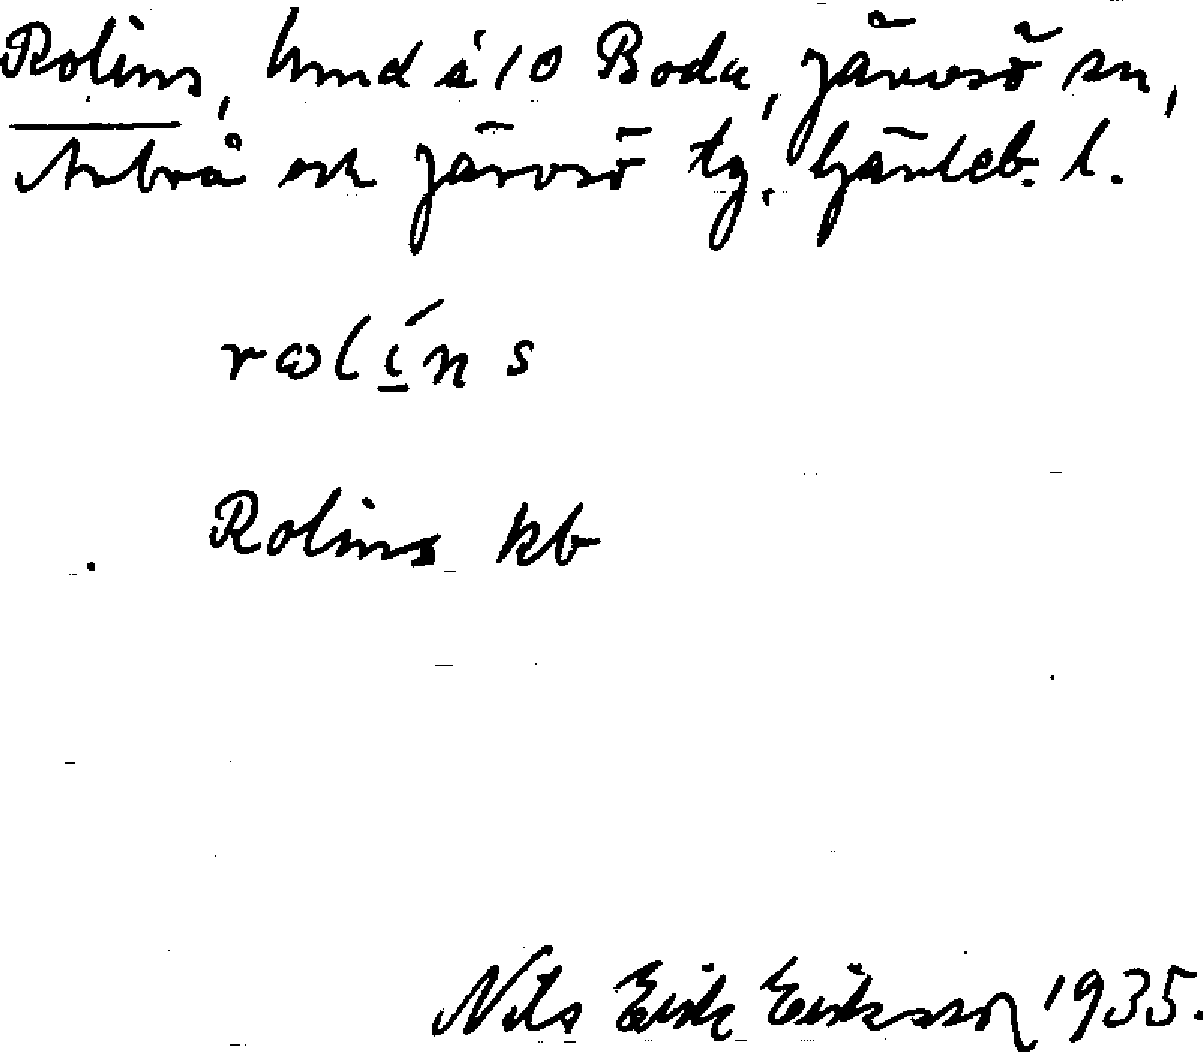 Rolins, hmd å 10 Boda, Järvsö sn,
Arbrå och Järvsö tg. Gävleb. l.
rωlíns
Rolins kb
Nils Erik Eriksson 1935.